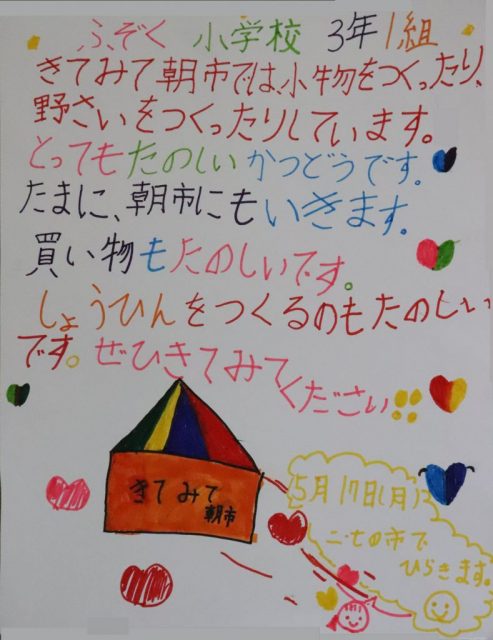 ふぞく 小学校 3年1組
きてみて朝市では、小物をつくったり、
野さいをつくったりしています。
とってもたのしいかつどうです。
たまに、朝市にもいきます。
買い物もたのしいです。
しょうひんをつくるのもたのしい
です。ぜひきてみて
ください!!
きてみて
朝市
5月17日(月)に
二・七の市で
ひらきます。